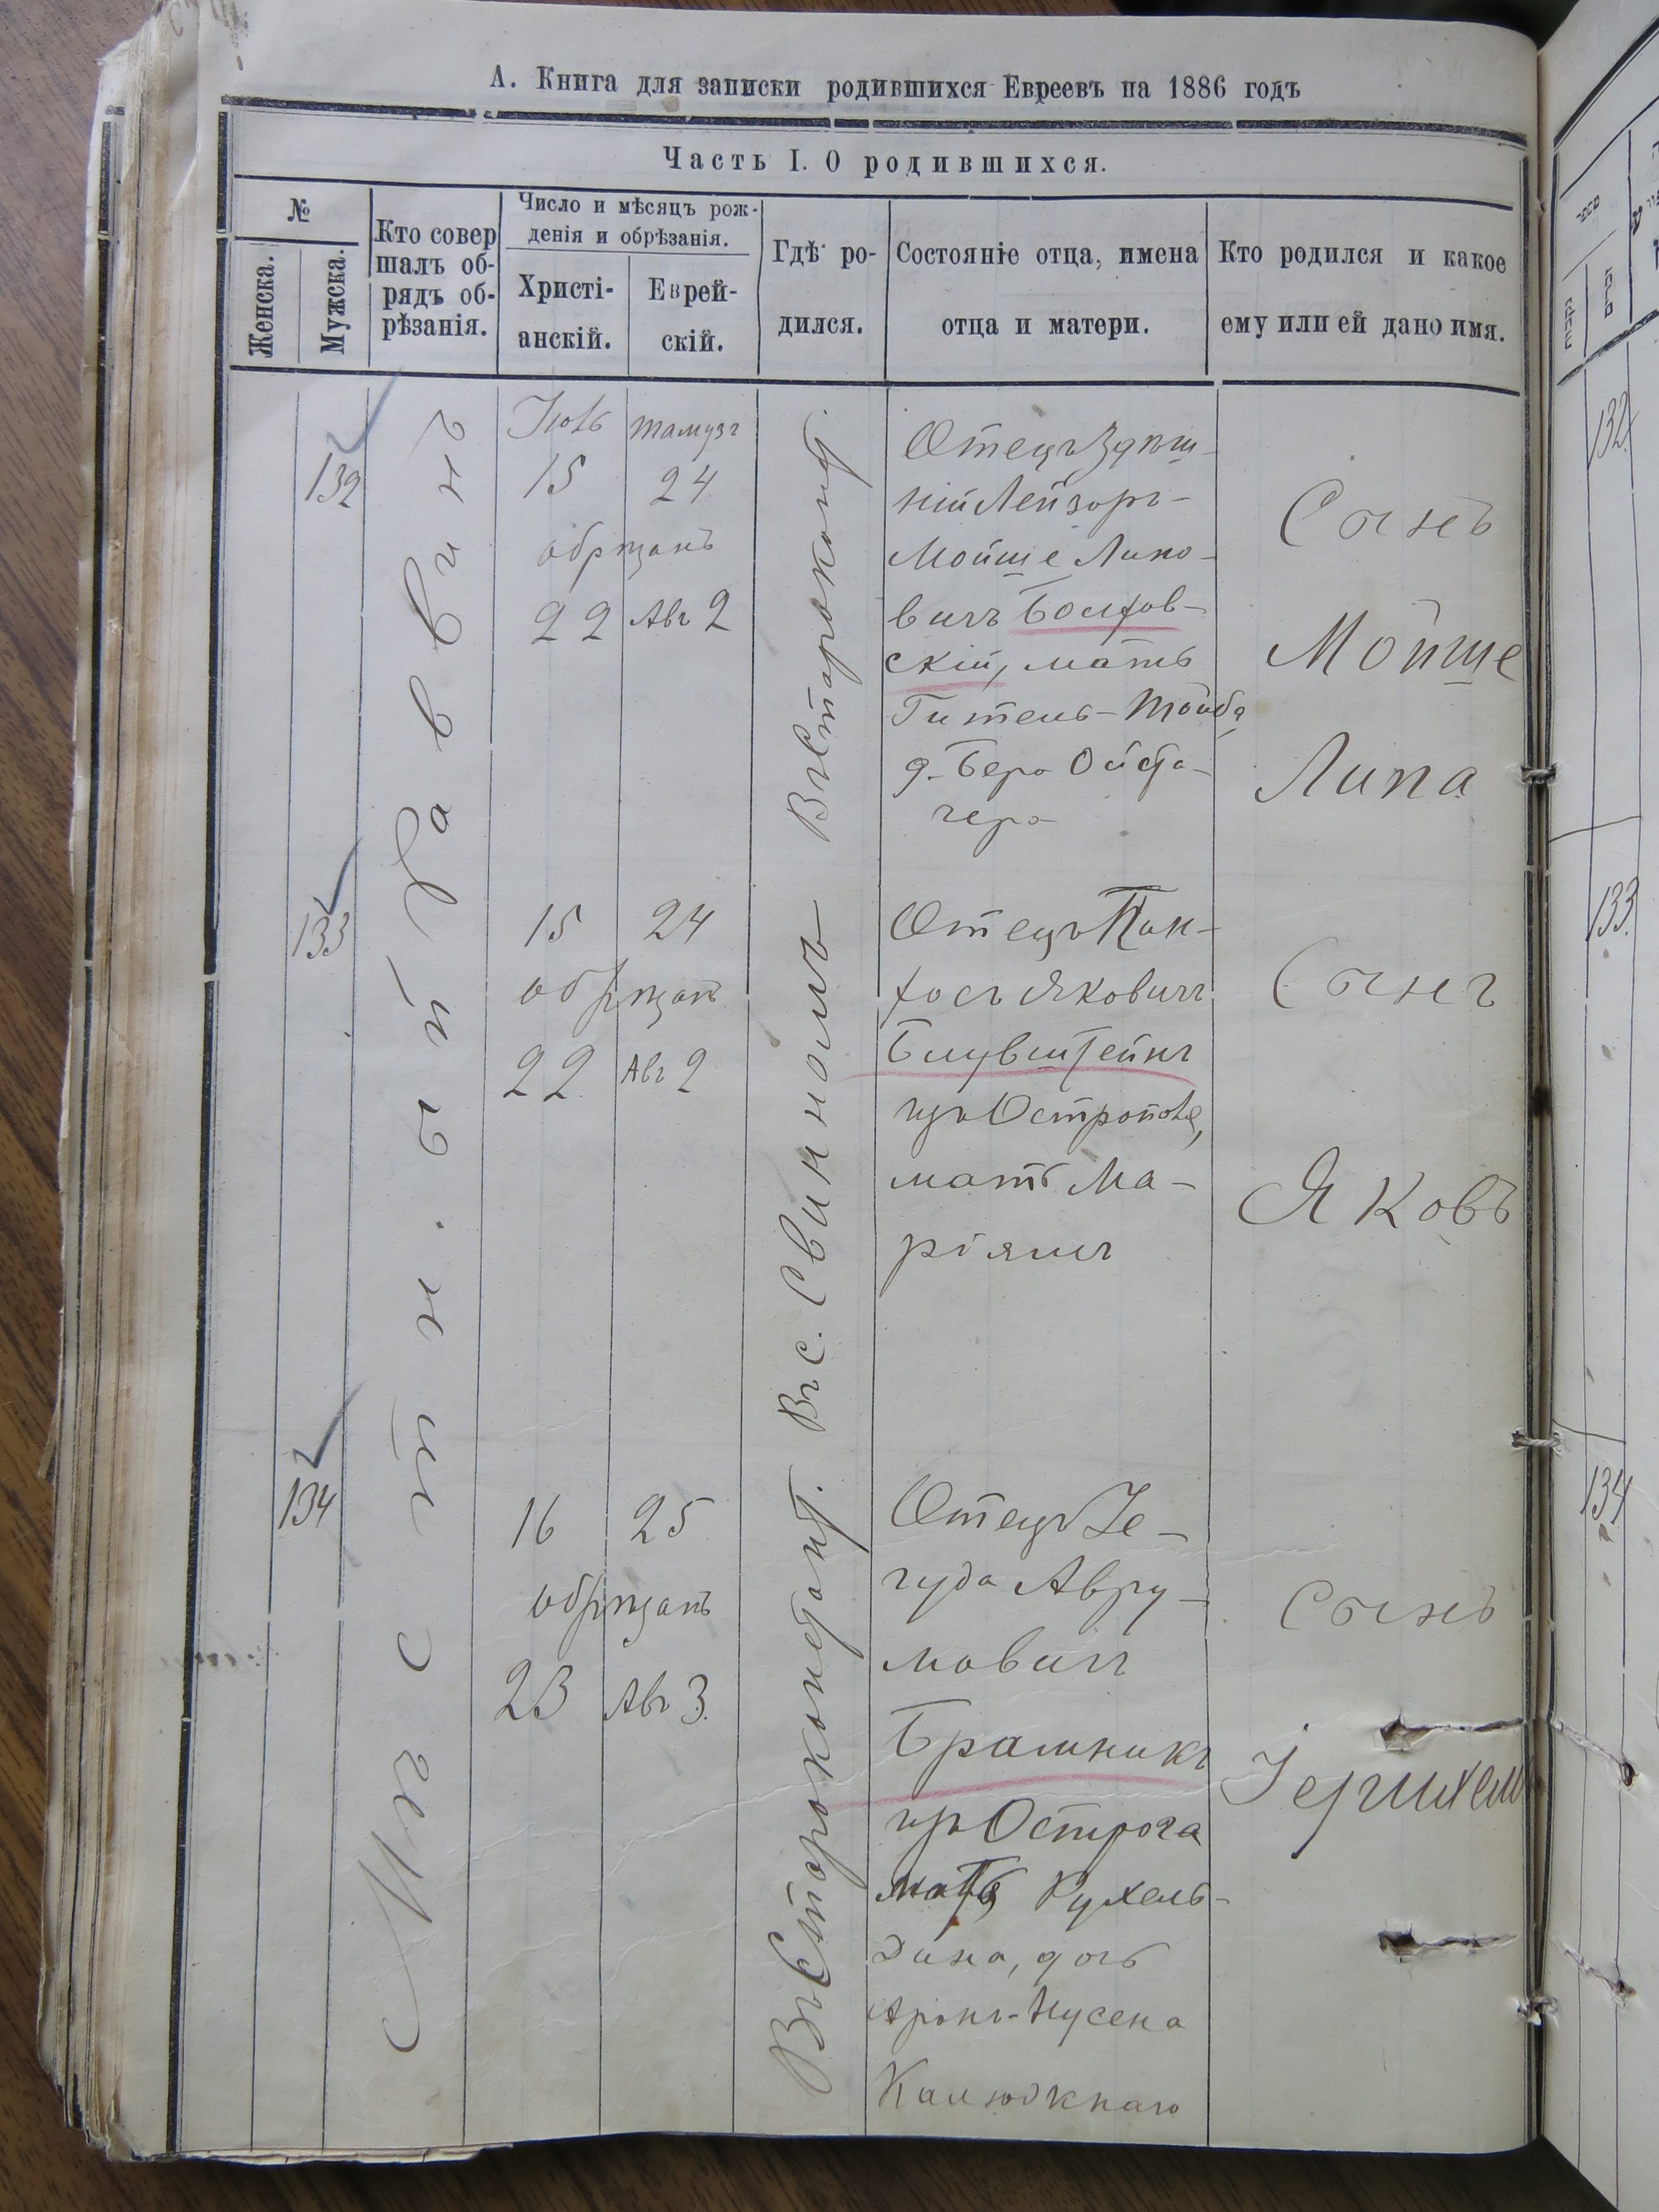 А. Книга для записки родившихся Евреевъ на 1886 годъ
Часть I. О родившихся.
№
Женска.
Мужска.
Кто совер
шалъ об-
рядъ об-
рѣзанія.
Число и мѣсяцъ рож-
денія и обрѣзанія.
Христі-
анскій.
Еврей-
скій.
Гдѣ ро-
дился.
Состояніе отца, имена
отца и матери.
Кто родился и какое
ему или ей дано имя.
132
Іюль
тамузъ
15
24
обрѣзанъ
22
Авъ 2
Въ Староконст.
Отецъ Здѣш-
ній Лейзоръ-
Мойше Липо-
вичъ
скій, мать
Гитель-Тойба
д. Бера
гера
Сынъ
Мойше
Липа
133
15
24
обрѣзанъ
22
Авъ 2
Въ с. Свинномъ
Отецъ Пин-
хосъ Яковичъ
Блувштейнъ
изъ Острополя,
мать Ма-
ріямъ
Сынъ
Яковъ
134
16
25
обрѣзанъ
23
Авъ 3.
Отецъ Іе-
гуда Авру-
мовичъ
Брамникъ
изъ Острога
мать Рухель-
Дина, дочь
Аронъ-Нусена
Сынъ
132
133
134